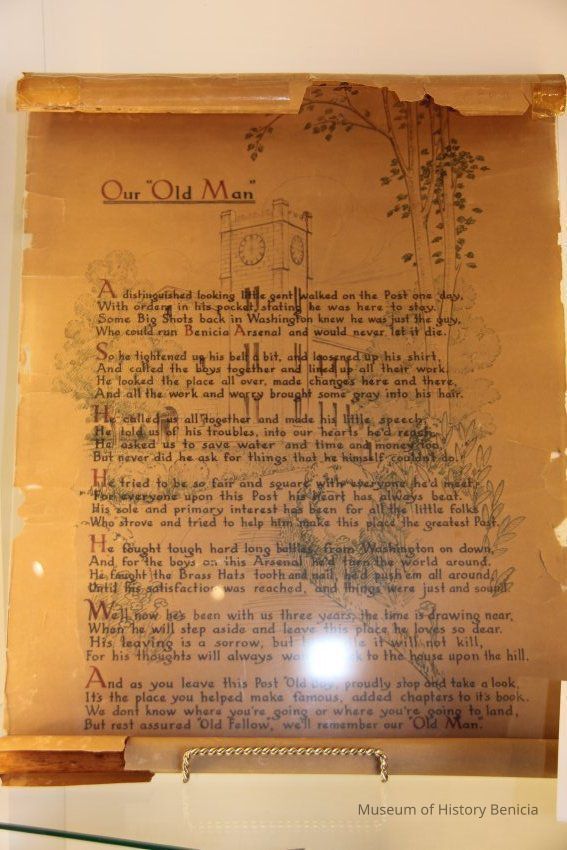 Our "Old Man"
A distinguished looking little gent walked on the Post one day,
With orders in his pocket, stating he was here to stay.
Some Big Shots back in Washington knew he was just the guy,
Who could run Benicia Arsenal and would never let it die.
So he tightened up his belt a bit, and loosened up his shirt,
And called the boys together and lined up all their work.
He looked the place all over, made changes here and there,
And all the work and worry brought some gray into his hair.
He called us all together and made his little speech,
He told us of his troubles, into our hearts he'd reach,
He asked us to save water and time and money too,
But never did he ask for things that he himself couldn't do.
He tried to be so fair and square with everyone he'd meet,
For everyone upon this Post his heart has always beat.
His sole and primary interest has been for all the little folks
Who strove and tried to help him make this place the greatest Post.
He fought tough hard long battles from Washington on down,
And for the boys on this Arsenal he'd turn the world around.
He fought the Brass Hats tooth and nail, he'd push em all around,
Until his satisfaction was reached, and things were just and sound.
Well now he's been with us three years, the time is drawing near,
When he will step aside and leave this place he loves so dear.
His leaving is a sorrow, but it will not kill,
For his thoughts will always to the house upon the hill.
And as you leave this Post "Old Boy", proudly stop and take a look,
It's the place you helped make famous, added chapters to it's book.
We dont know where you're going or where you're going to land,
But rest assured "Old Fellow", we'll remember our "Old Man".
Museum of History Benicia